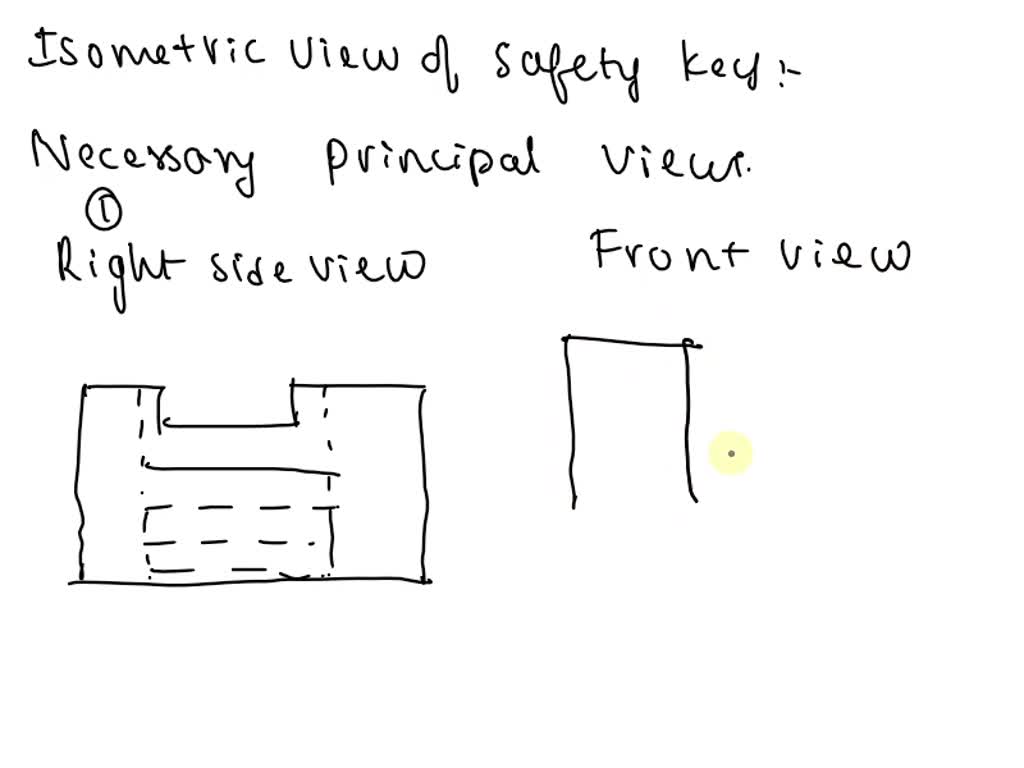 Isometric view of safety key :-
Necessary principal views.
①
Right side view
Front view